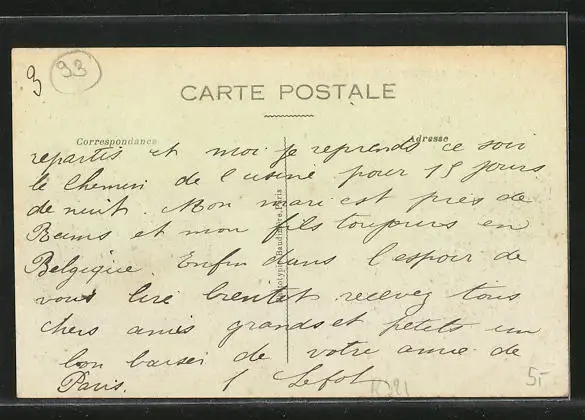 9 93
CARTE POSTALE
Correspondance
Adresse
repartis et moi je reprends ce soir
le chemin de l'usine pour 15 jours
de nuit. Mon mari est près de
Reims et mon fils toujours en
Belgique. Enfin dans l'espoir de
vous lire bientot recevez tous
chers amis grands et petits un
bon baiser de votre amie de
Paris. Lefol
5-